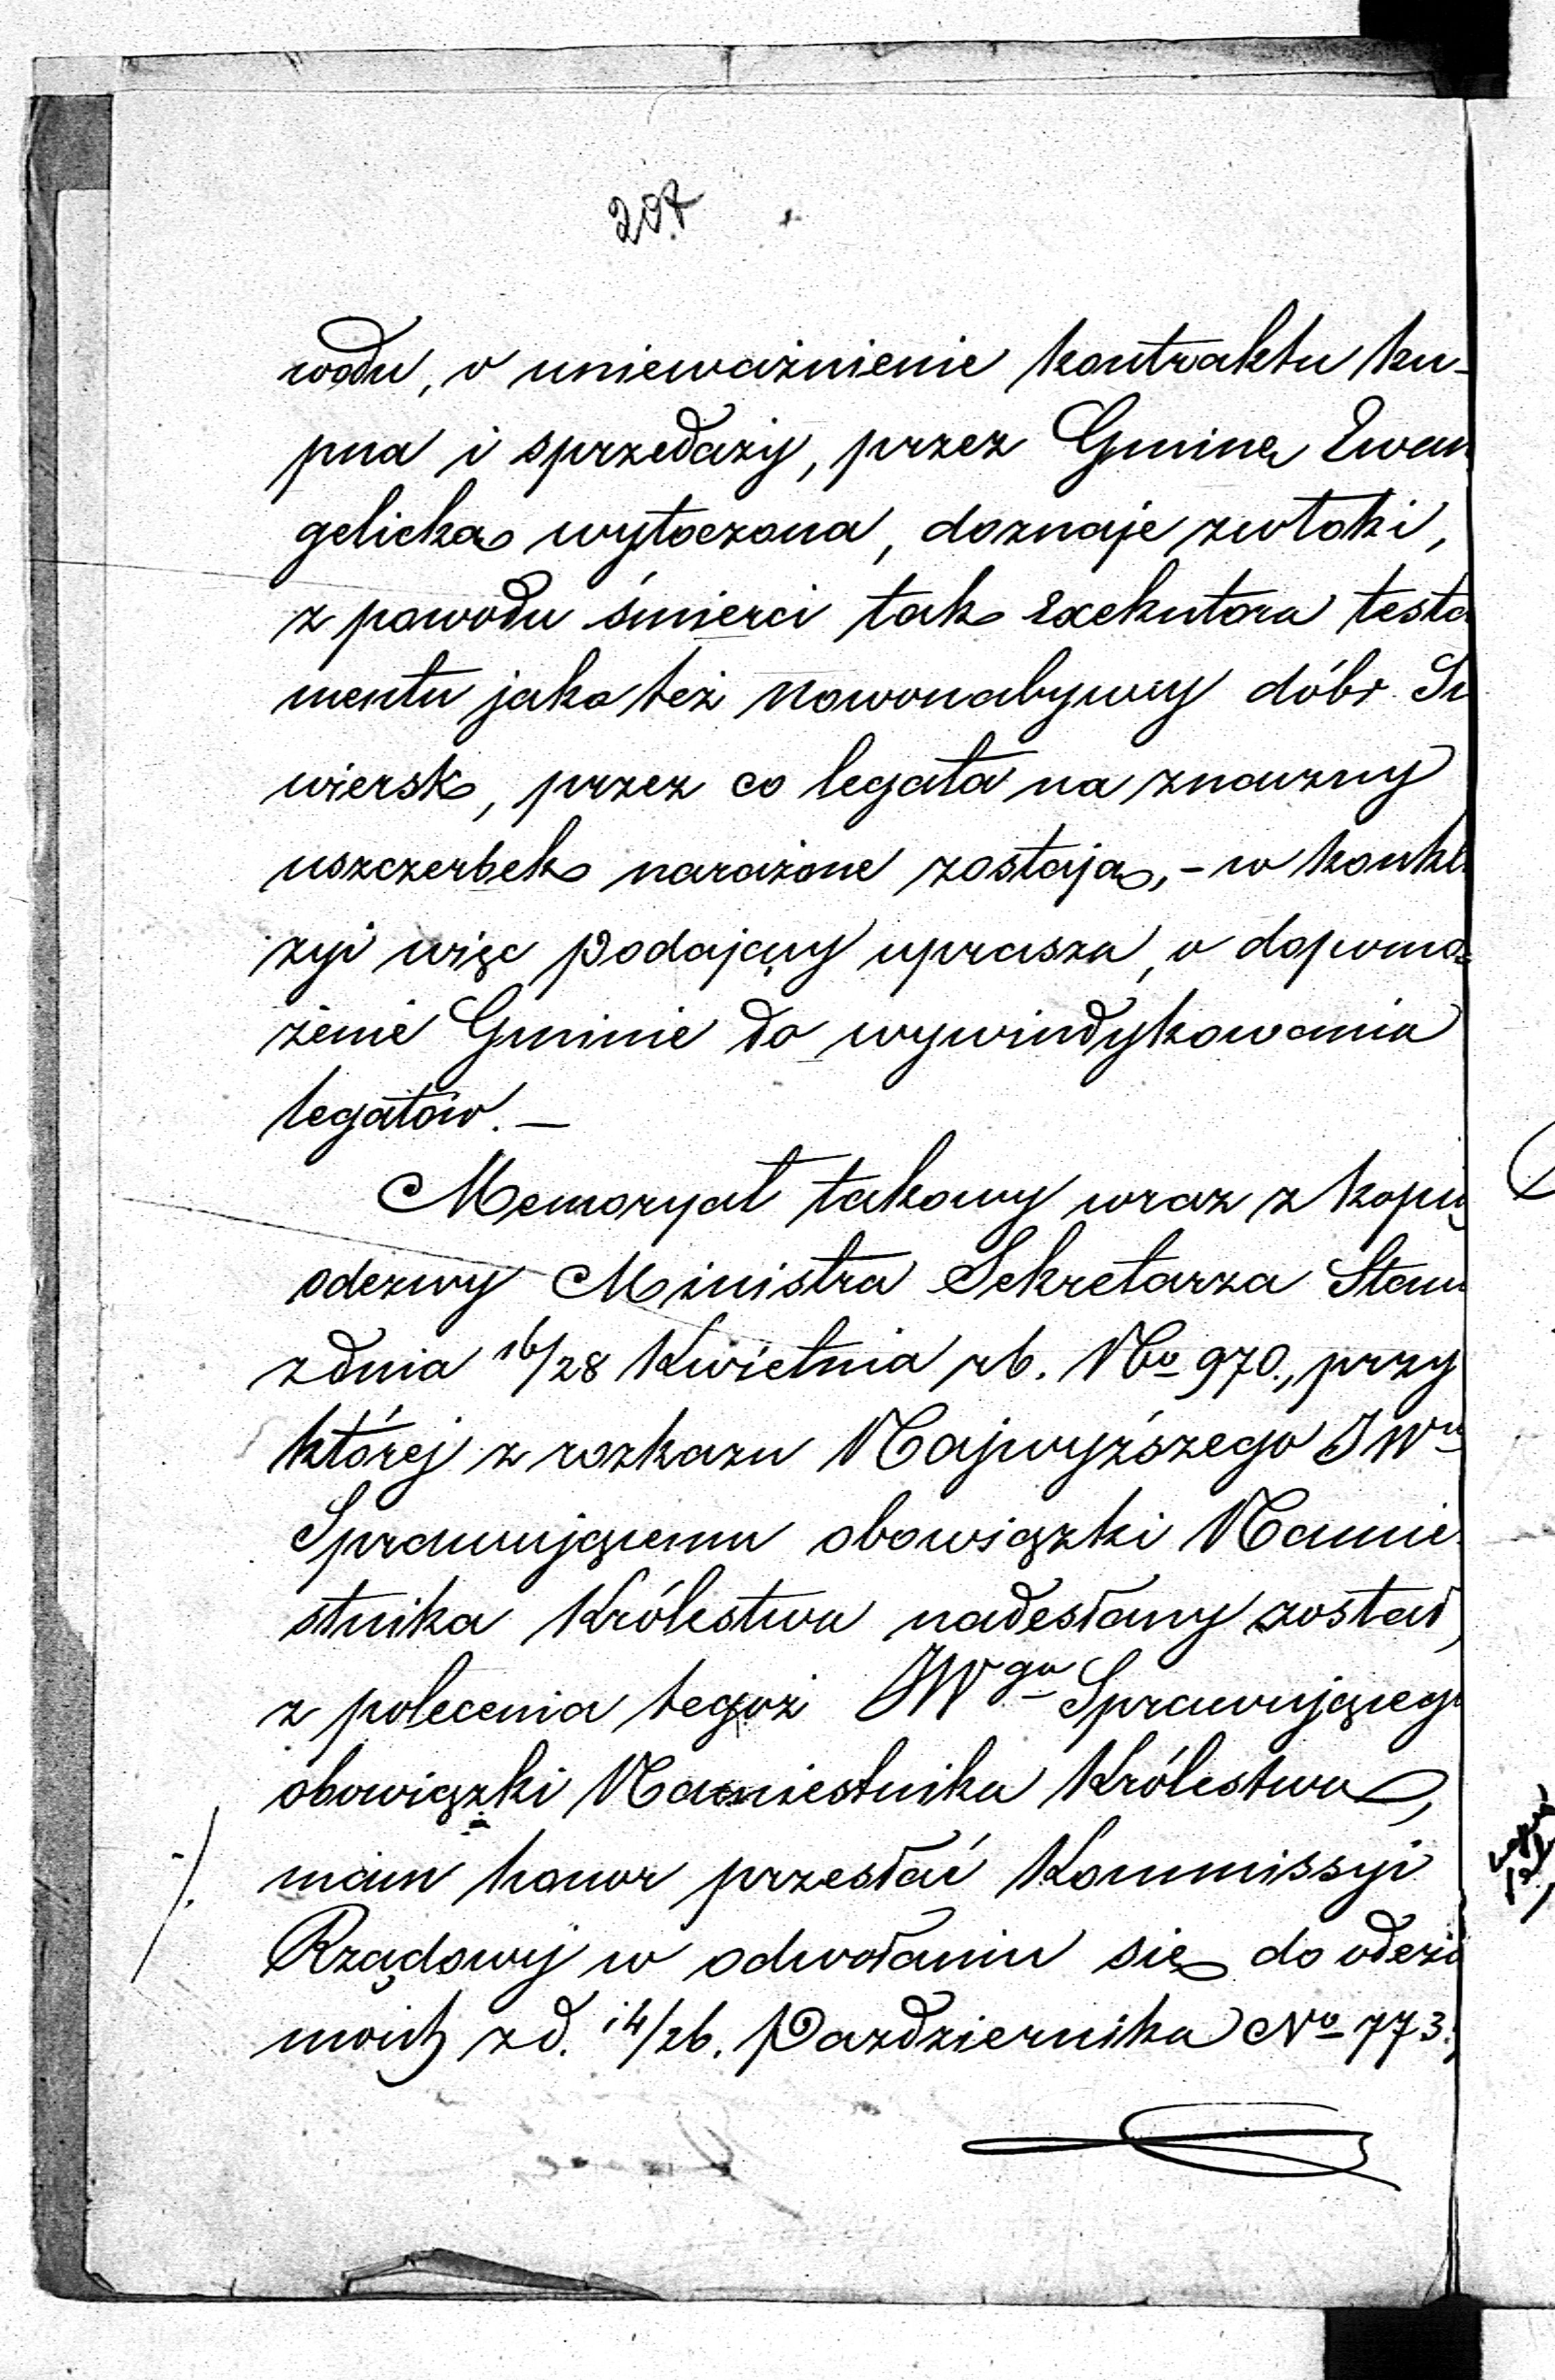 207
wodu, o unieważnienie kontraktu ku-
pna i sprzedaży, przez Gminę Ewan
gelicką wytoczona, doznaje zwłoki,
z powodu śmierci tak Exekutora testa
mentu jako też Nowonabywcy dóbr Su
wiersk, przez co legata na znaczny
uszczerbek narażone zostają, - w konklu
zyi więc Podający uprasza, o dopomo-
żenie Gminie do wywindykowania
legatów. —
Memoryał takowy wraz z kopią
odezwy Ministra Sekretarza Stanu
z dnia 16/28 Kwietnia rb. No 970., przy
której z rozkazu Najwyższego JWu
Sprawującemu obowiązki Namie
stnika Królestwa nadesłany został,
z polecenia tegoż JWgo Sprawującego
obowiązki Namiestnika Królestwa,
mam honor przesłać Kommissyi
Rządowej w odwołaniu się do odezw
moich z d. 14/26. Pazdziernika No 773.,